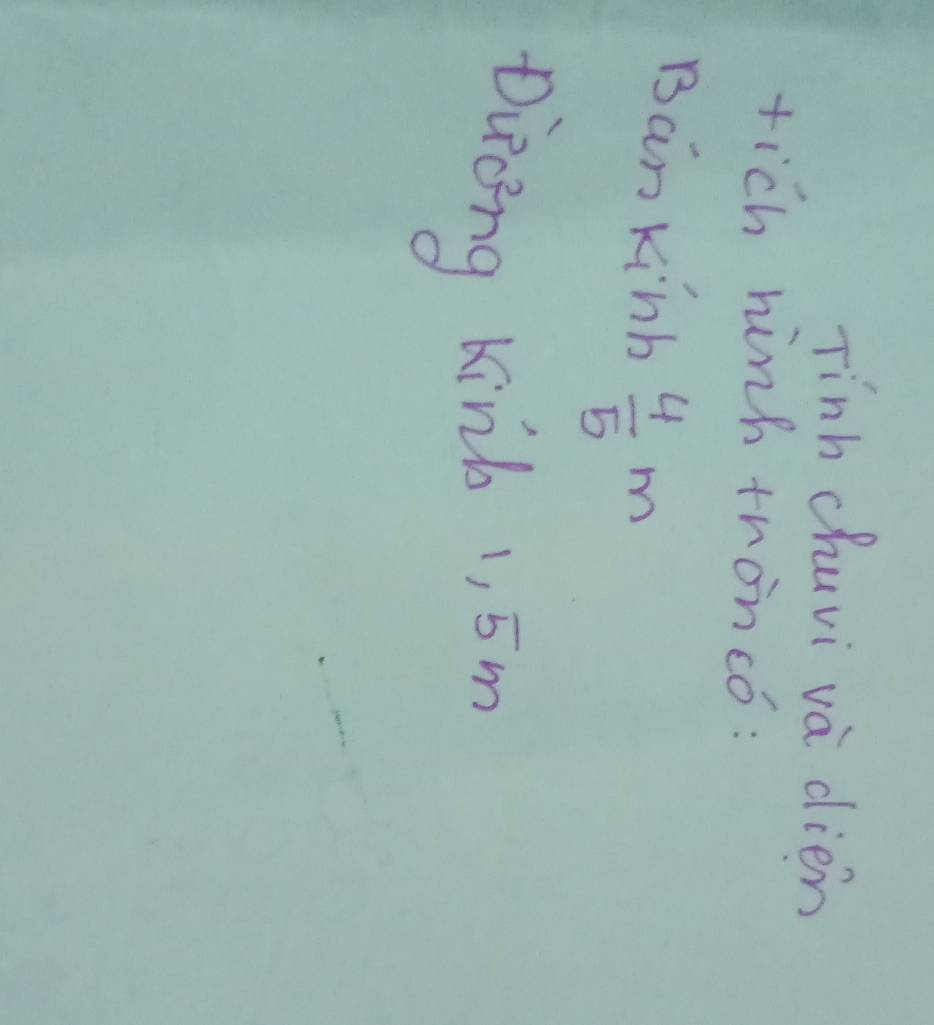 Tính chu vi và diện
tích hình tròn có:
Bán kính 4/5 m
Đường kính 1,5m